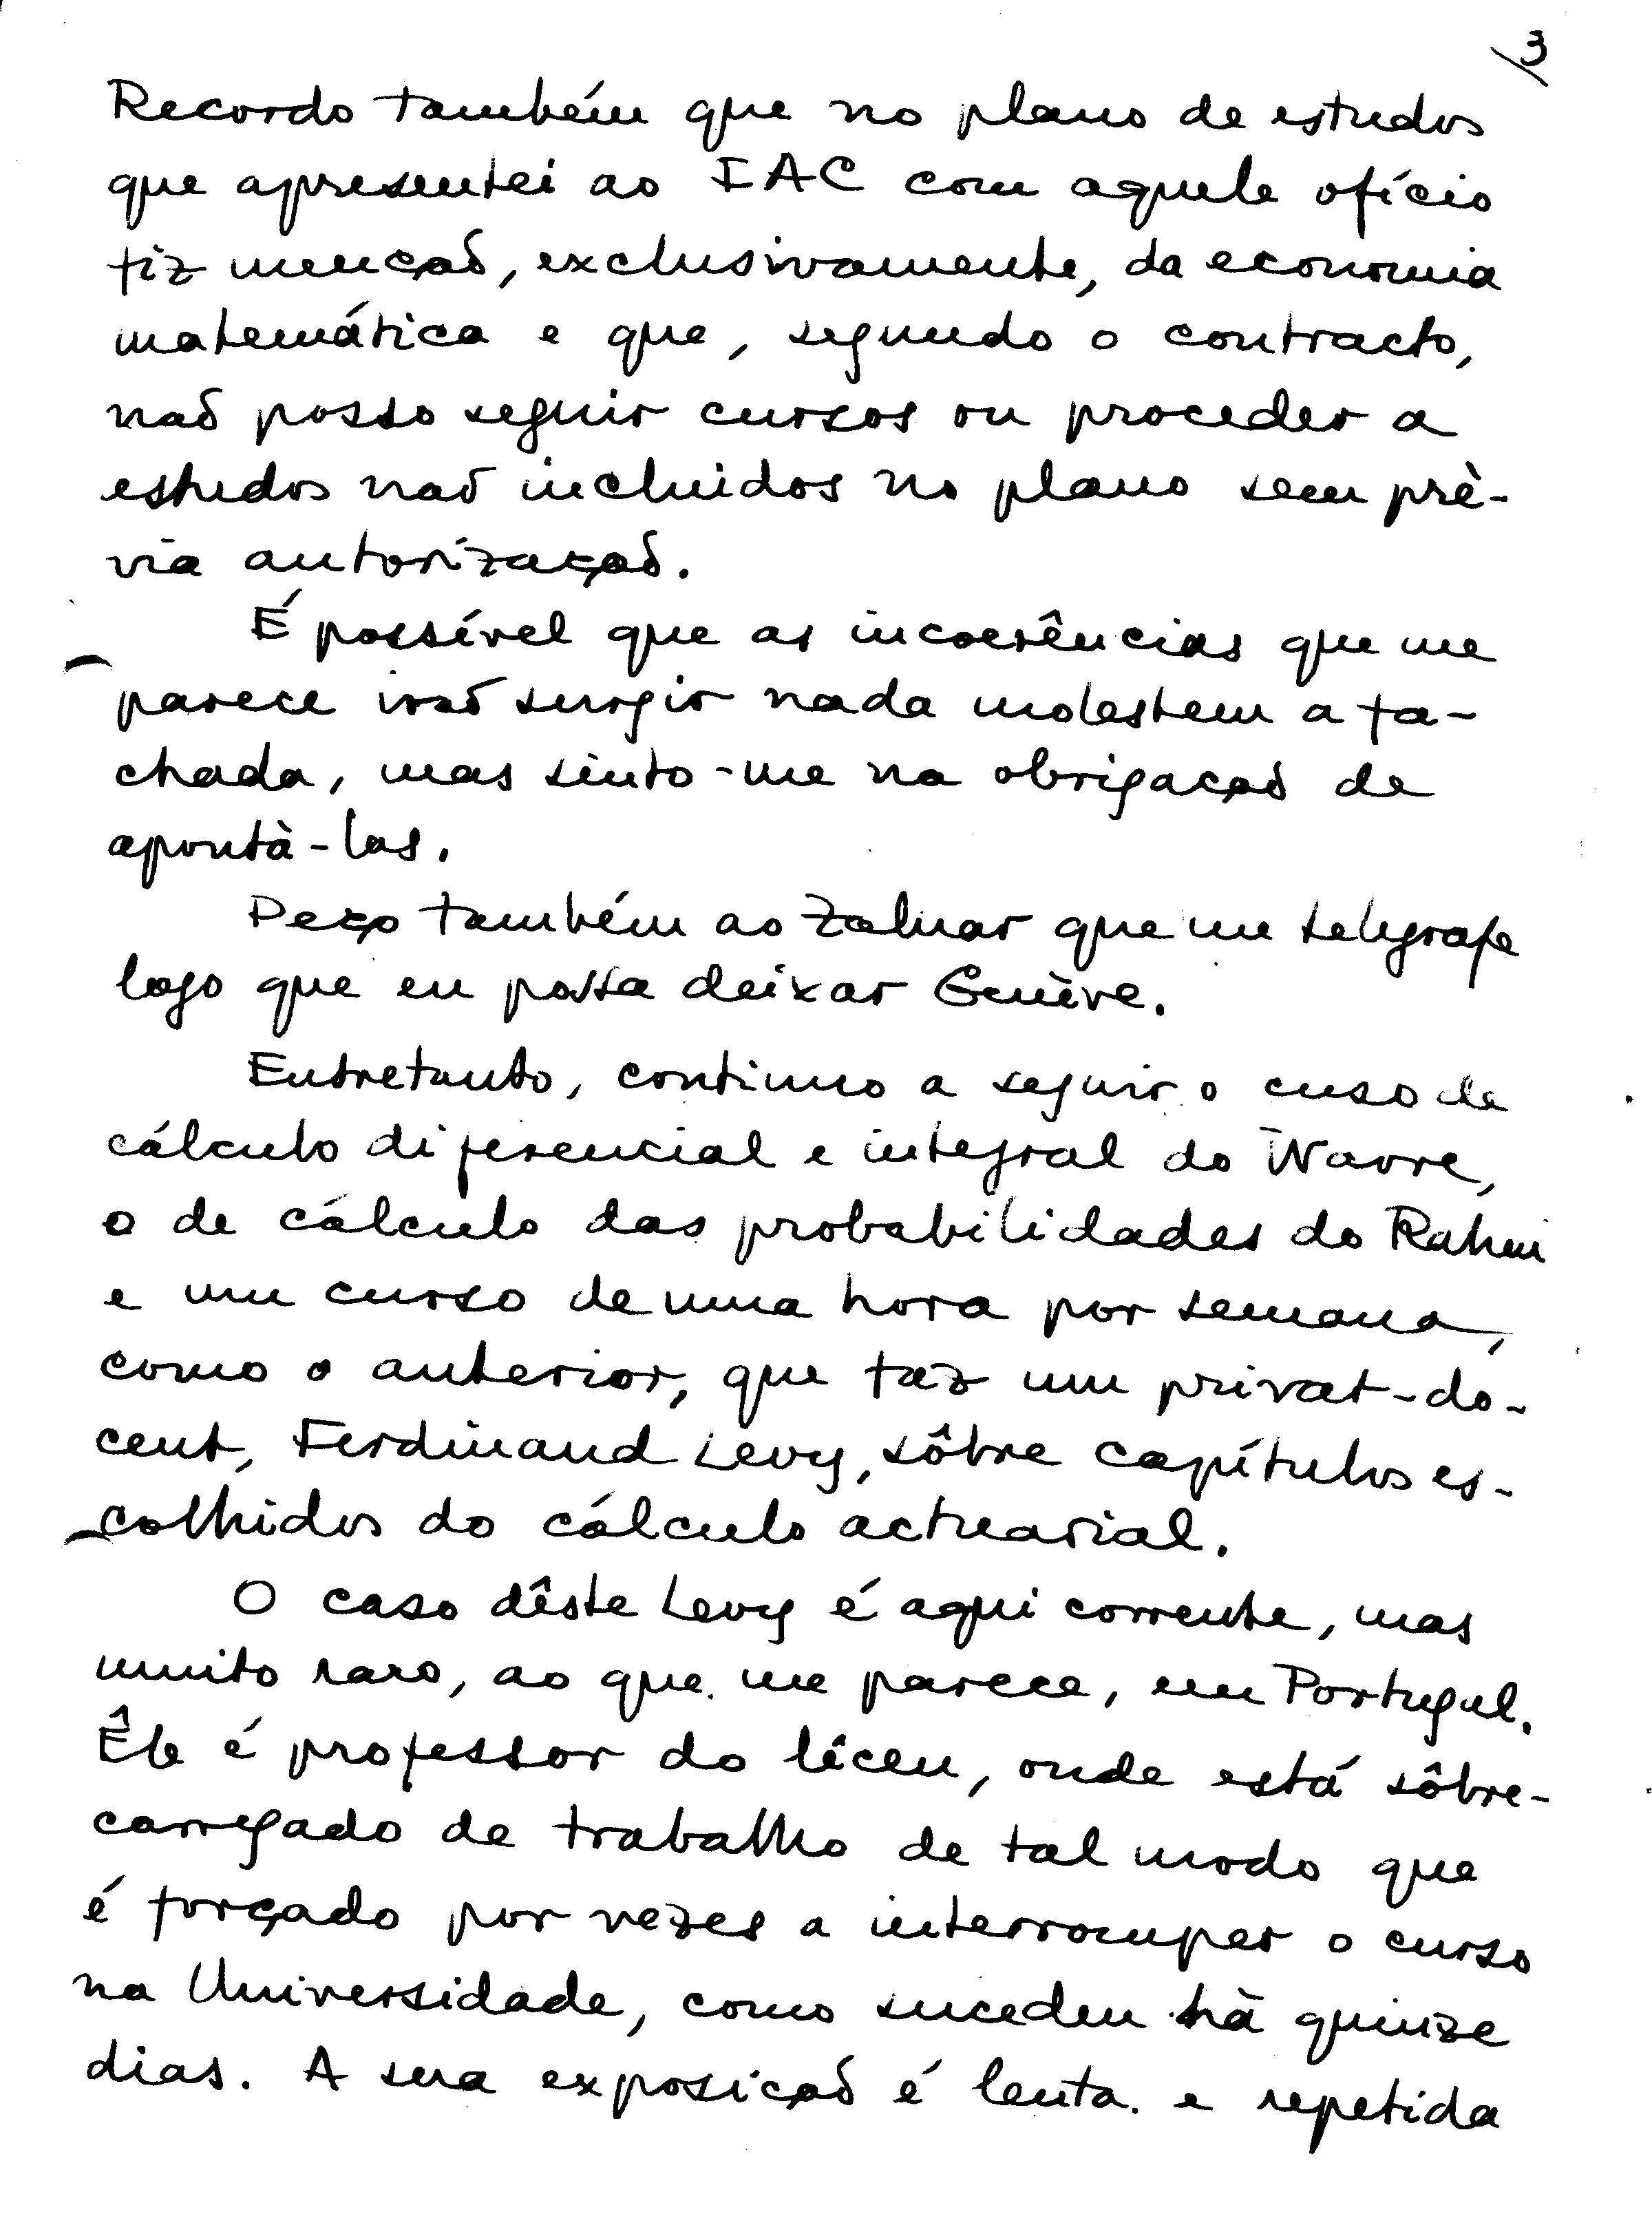 3
Recordo também que no plano de estudos
que apresentei ao IAC com aquele ofício
fiz menção, exclusivamente, da economia
matemática e que, segundo o contracto,
não posso seguir cursos ou proceder a
estudos não incluidos no plano sem prè-
via autorização.
É possível que as incoerências que me
parece irão surgir nada molestem a fa-
chada, mas sinto-me na obrigação de
apontà-las.
Peço também ao Zaluar que me telegrafe
logo que eu possa deixar Genève.
Entretanto, continuo a seguir o cuso de
cálculo diferencial e integral do Wavre,
o de cálculo das probabilidades do
e um curso de uma hora por semana,
como o anterior, que faz um privat-do-
cent, Ferdinand Levy, sôbre capítulos es-
colhidos do cálculo actuarial.
O caso dêste Levy é aqui corrente, mas
muito raro, ao que me parece, em Portugal.
Êle é professor do liceu, onde está sôbre-
carregado de trabalho de tal modo que
é forçado por vezes a interromper o curso
na Universidade, como sucedeu hà quinze
dias. A sua exposição é lenta e repetida